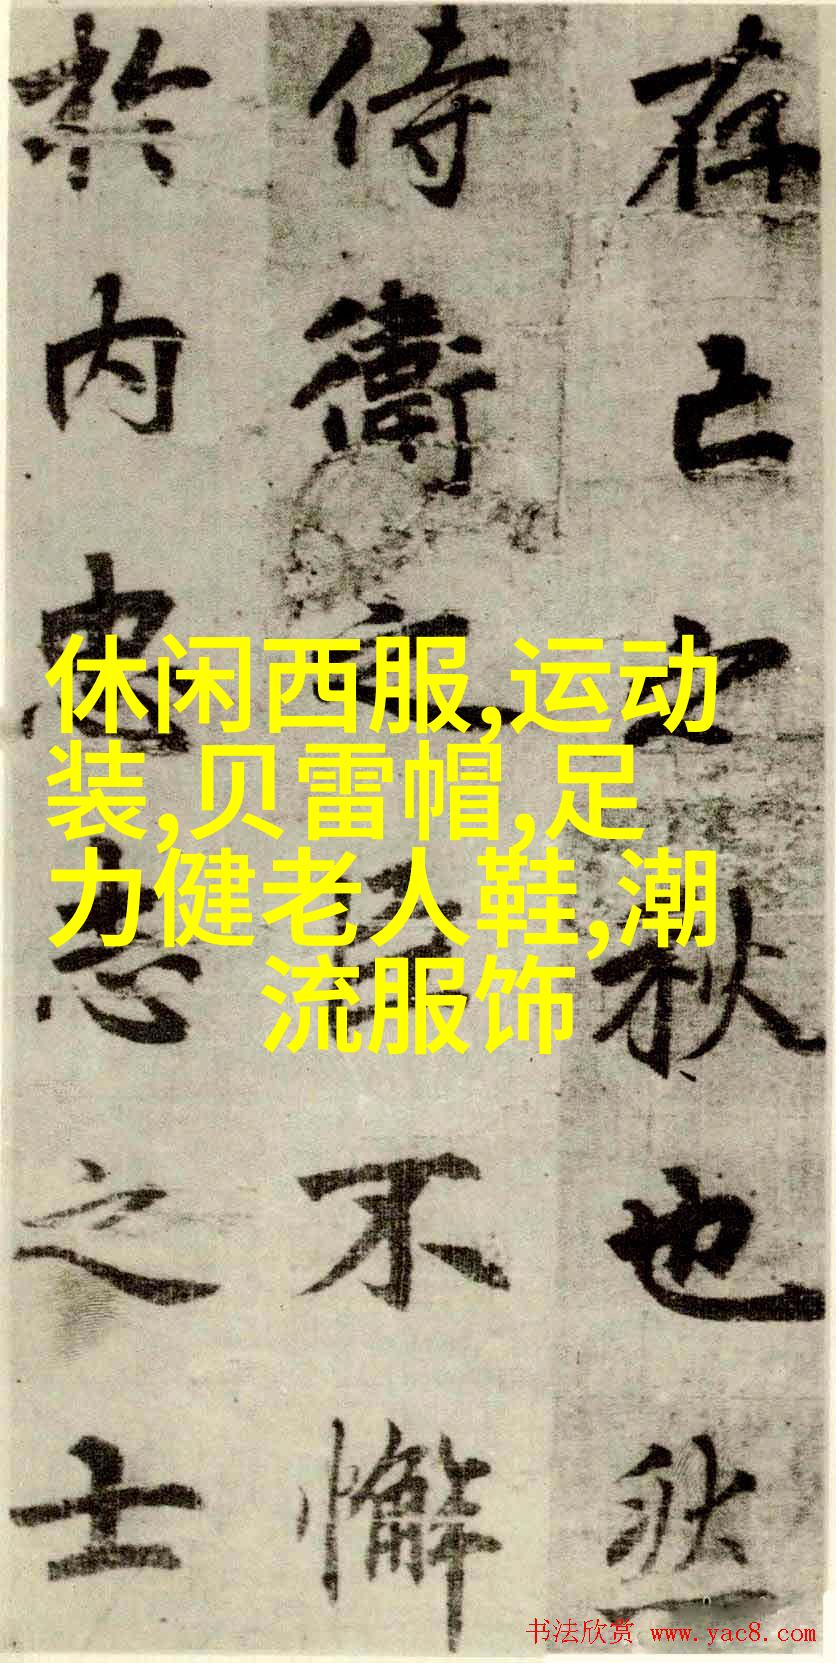 存亡之秋也然
侍衛之臣不懈
於内忠志之士
休闲西服,运动
装,贝雷帽,足
力健老人鞋,潮
流服饰
书法欣赏 www.yac8.com